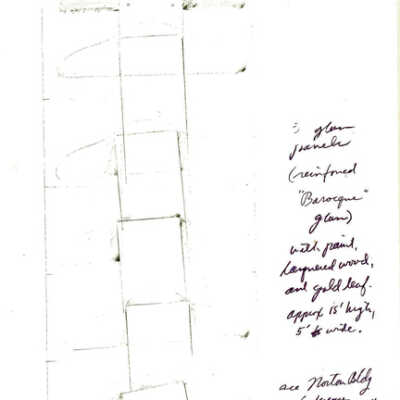 glass
panels
(reinforced
"Baroque"
glass)
with paint,
laquered wood,
and gold leaf.
approx 15' high,
5' wide.
Norton Bldg